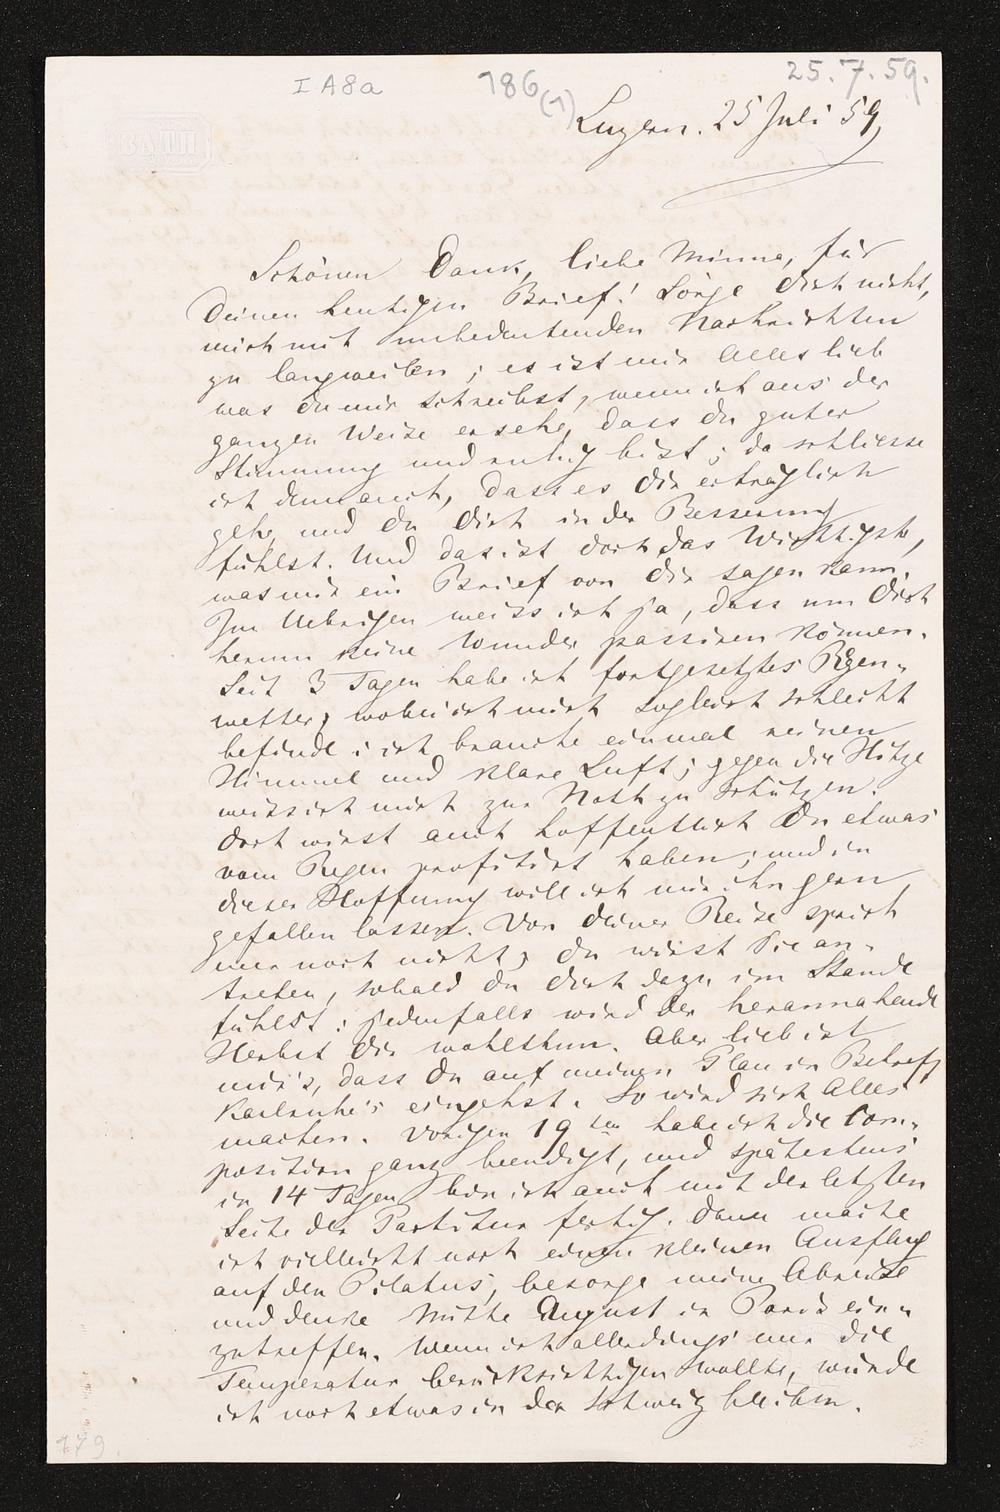 I A8a
186 (1)
25.7.59.
BATH
Luzern. 25 Juli 59,
Schönen Dank, liebe Minna, für
Deinen heutigen Brief! Sorge dich nicht,
mich mit unbedeutenden Nachrichten
zu langweilen; es ist mir Alles lieb
was du mir schreibst, wenn ich aus der
ganzen Weise ersehe, dass du guter
Stimmung und ruhig bist; da schliesse
ich denn auch, dass es dir erträglich
geht, und du dich in der Besserung
fühlst. Und das ist doch das Wichtigste,
was mir ein Brief von dir sagen kann.
Im Uebrigen weiss ich ja, dass um dich
herum keine Wunder passiren können.
Seit 3 Tagen habe ich fortgesetztes Regen-
wetter, wobei ich mich sogleich schlecht
befinde: ich brauche einmal reinen
Himmel und klare Luft; gegen die Hitze
weiss ich mich zur Noth zu schützen.
Dort wirst auch hoffentlich Du etwas
vom Regen profitirt haben; und in
dieser Hoffnung will ich mir ihn gern
gefallen lassen. Von deiner Reise sprich
nur noch nicht; du wirst sie an-
treten, sobald du dich dazu im Stande
fühlst: jedenfalls wird der herannahende
Herbst dir wohlthun. Aber lieb ist
mir's, dass du auf meinen Plan in Betreff
Karlsruhe's eingehst. So wird sich Alles
machen. Vorigen 19ten habe ich die Com-
position ganz beendigt, und spätestens
in 14 Tagen bin ich auch mit der letzten
Seite der Partitur fertig. Dann mache
ich vielleicht noch einen kleinen Ausflug
auf den Pilatus, besorge meine Abreise
und denke Mitte August in Paris ein-
zutreffen. Wenn ich allerdings nur die
Temperatur berücksichtigen wollte, würde
ich noch etwas in der Schweiz bleiben.
179.